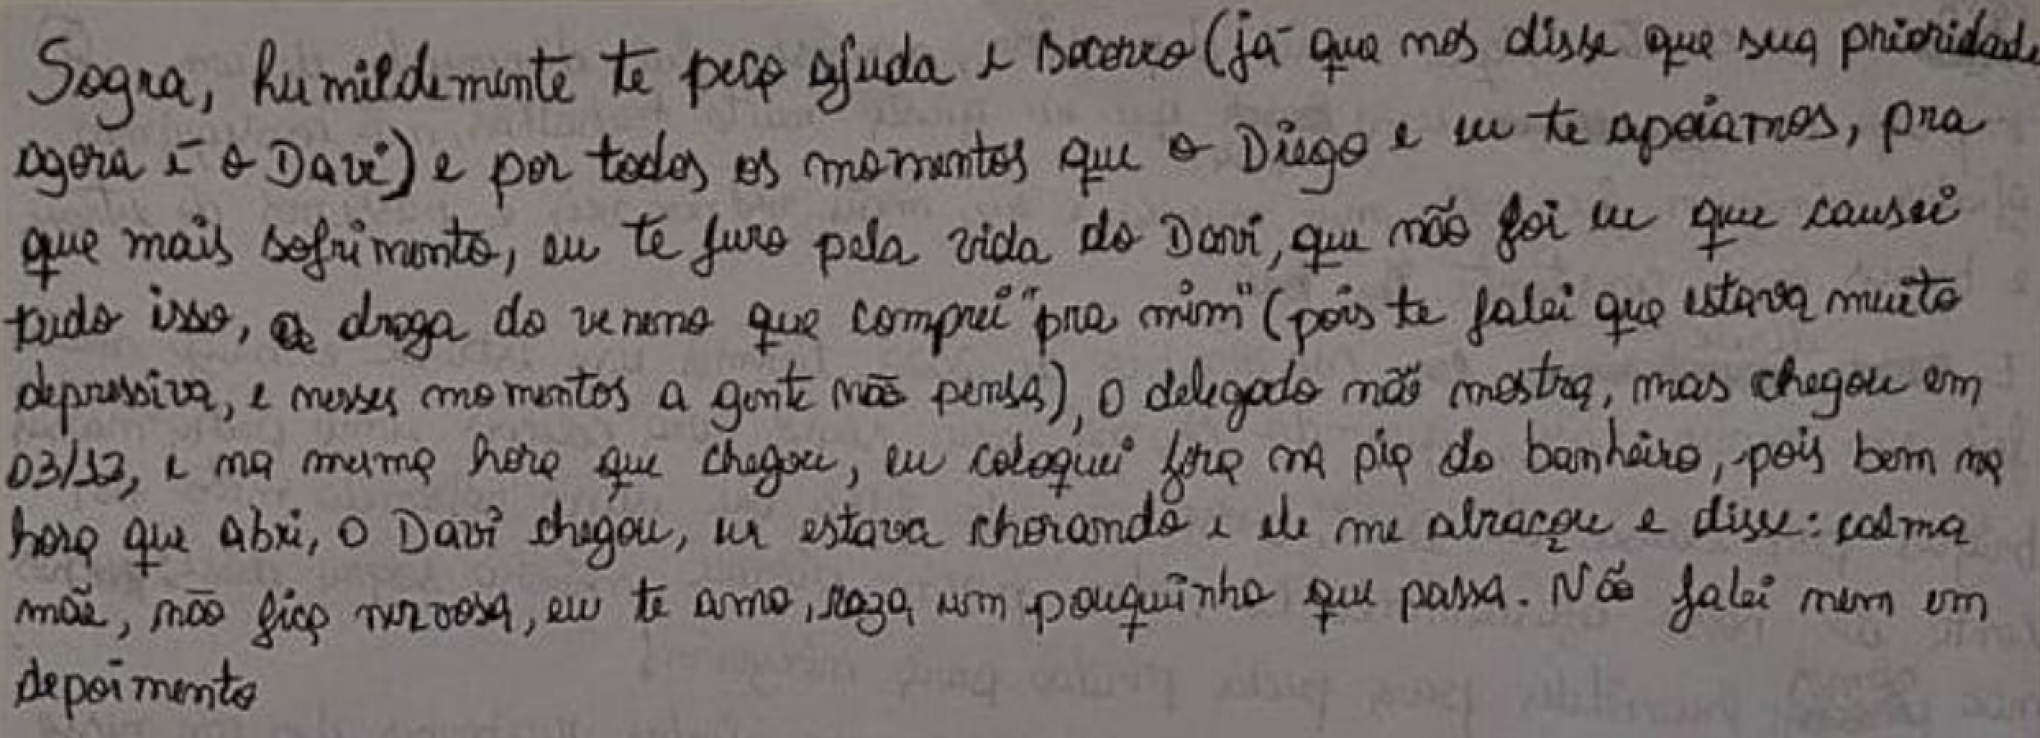 Sogra, humildemente te peço ajuda e socorro (já que nos disse que sua prioridade
agora é o Davi) e por todos os momentos que o Diego e eu te apoiamos, pra
que mais sofrimento, eu te juro pela vida do Davi, que não foi eu que causei
tudo isso, a droga do veneno que comprei "pra mim" (pois te falei que estava muito
depressiva, e nesses momentos a gente não pensa), o delegado não mostra, mas chegou em
03/12, e na mesma hora que chegou, eu coloquei fora na pia do banheiro, pois bem na
hora que abri, o Davi chegou, eu estava chorando e ele me abraçou e disse: calma
mãe, não fica nervosa, eu te amo, reza um pouquinho que passa. Não falei nem em
depoimento